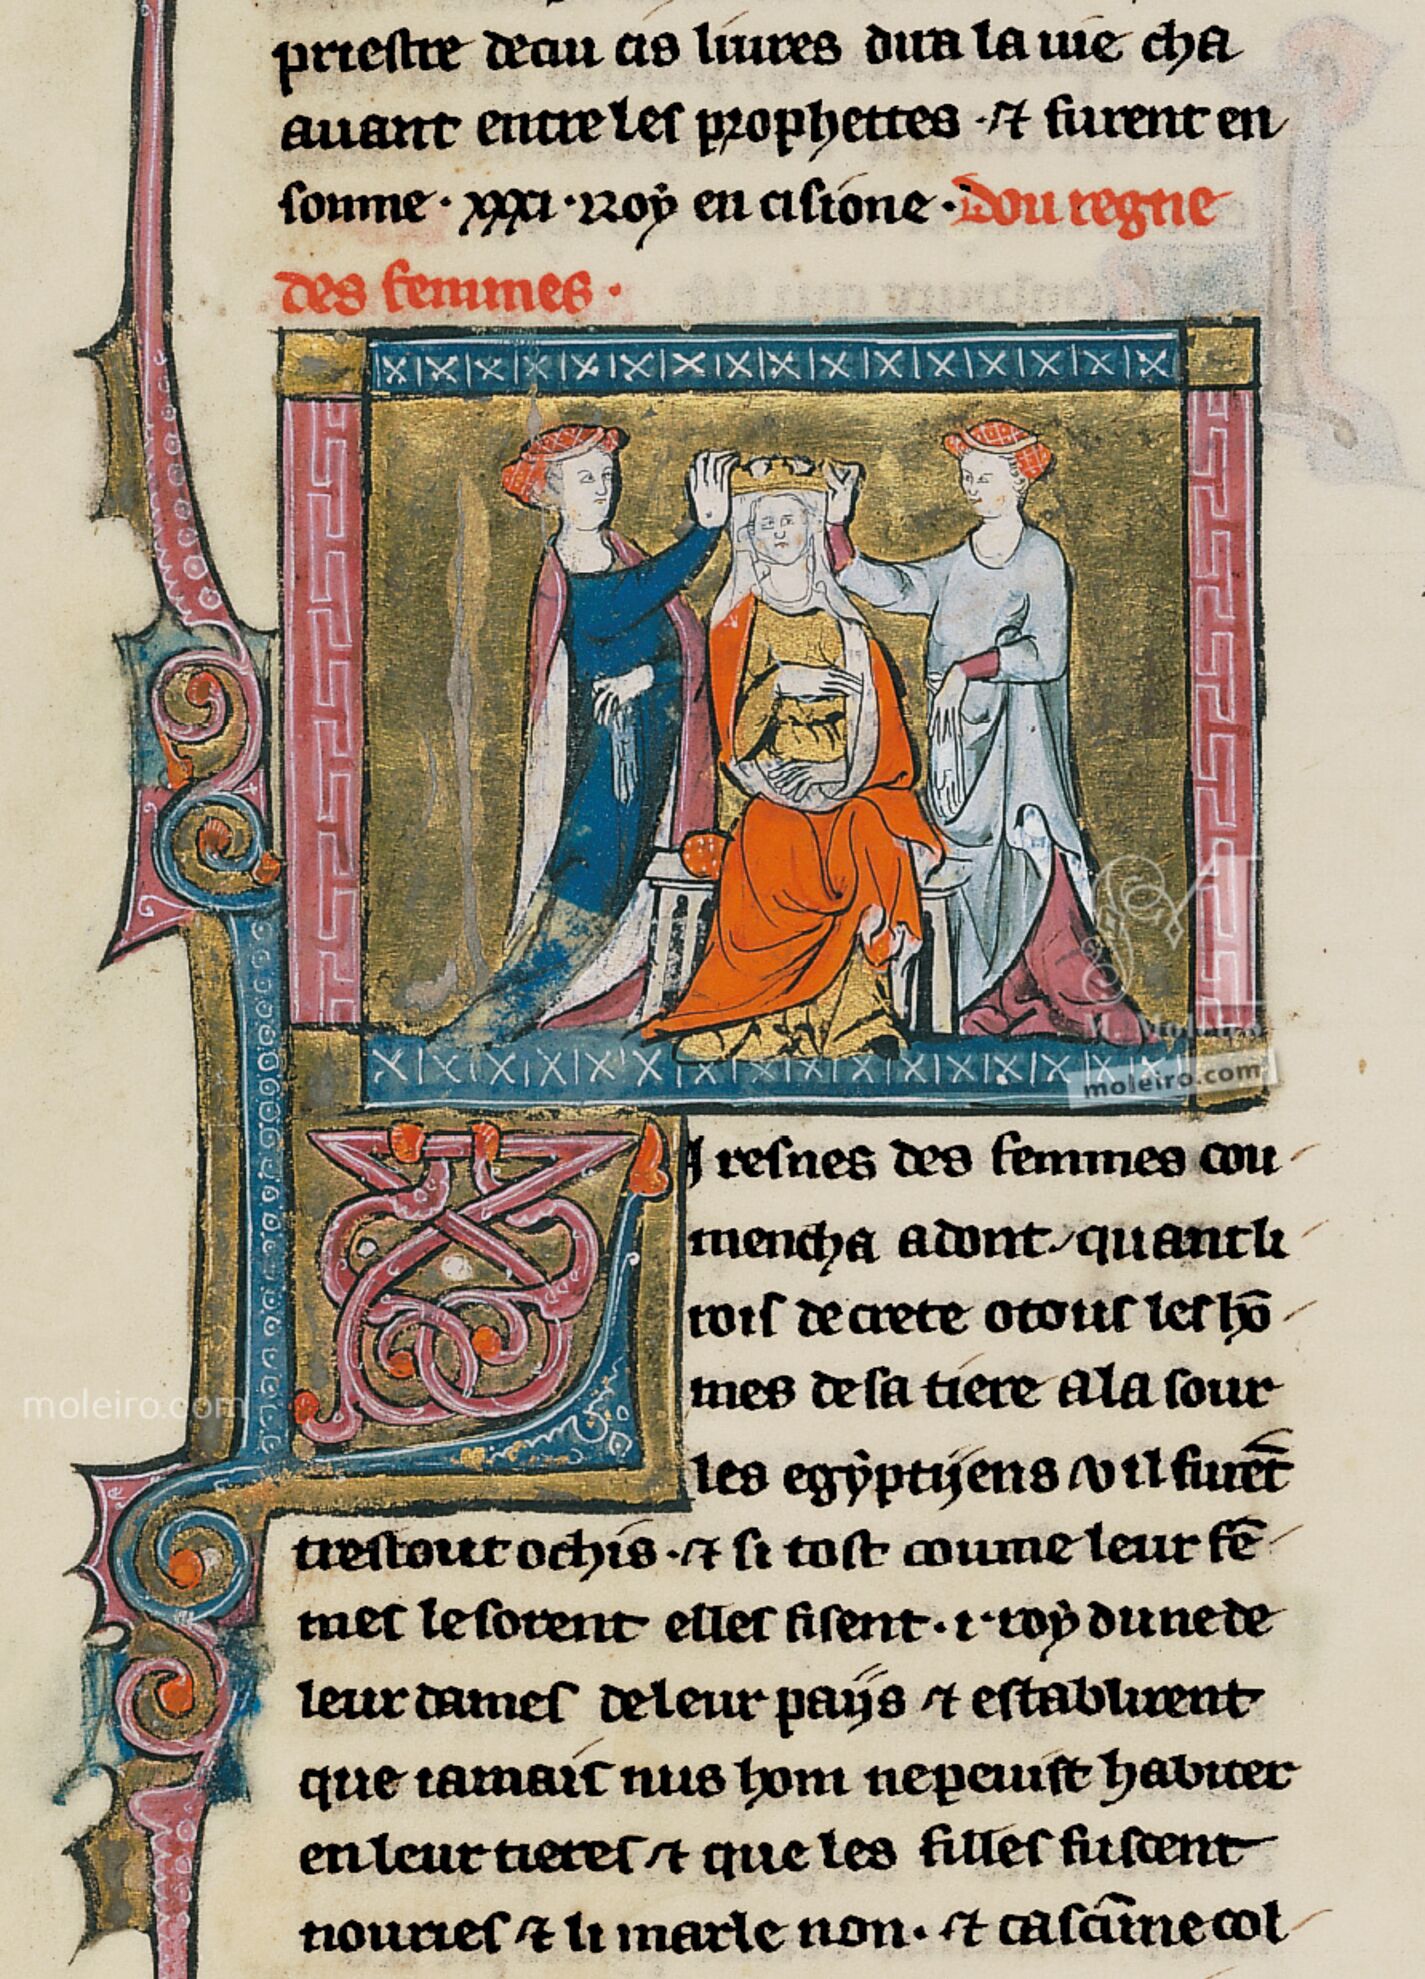 priestre de cui cis liures dira la uie cha
auant entre les prophettes · ⁊ furent en
soume · xxxi · Roẏ en cisione · Dou regne
des femmes ·
I resnes des femmes cou
mencha adont quant li
rois de crete o tous les hō
mes de sa tiere ala sour
les egẏptijens v il furēt
trestout ochis · ⁊ si tost coume leur fē
mes le sorent elles fisent · i · roẏ dune de
leur dames de leur paijs ⁊ establirent
que iamais nus hom ne peuist habiter
en leur tieres ⁊ que les filles fuscent
nouries ⁊ li marle non · ⁊ cascūne col
M. Moleiro
moleiro.com
moleiro.com